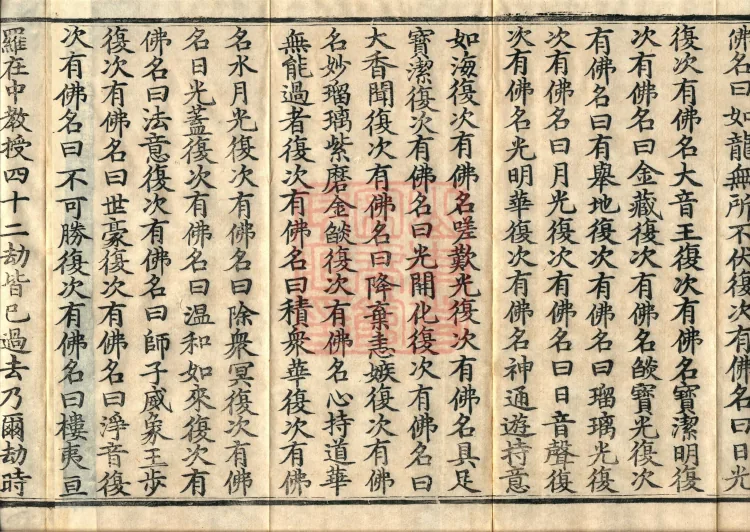 佛名曰如龍無所不伏復次有佛名曰日光
復次有佛名大音王復次有佛名寶潔明復
次有佛名曰金藏復次有佛名燄寶光復次
有佛名曰有舉地復次有佛名曰瑠璃光復
次有佛名曰月光復次有佛名曰日音聲復
次有佛名光明華復次有佛名神通遊持意
如海復次有佛名嗟歎光復次有佛名具足
寶潔復次有佛名曰光開化復次有佛名曰
大香聞復次有佛名曰降棄恚嫉復次有佛
名妙瑠璃紫磨金燄復次有佛名心持道華
無能過者復次有佛名曰積衆華復次有佛
名水月光復次有佛名曰除衆冥復次有佛
名日光蓋復次有佛名曰温和如來復次有
佛名曰法意復次有佛名曰師子威象王步
復次有佛名曰世豪復次有佛名曰淨音復
次有佛名曰不可勝復次有佛名曰樓夷亘
羅在中教授四十二劫皆已過去乃爾劫時